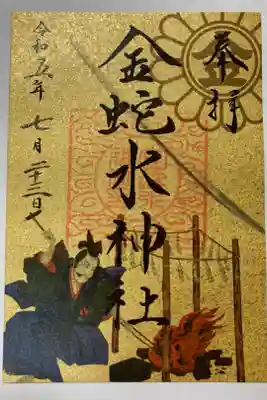 奉拝
金蛇水神社
令和五年 七月二十三日